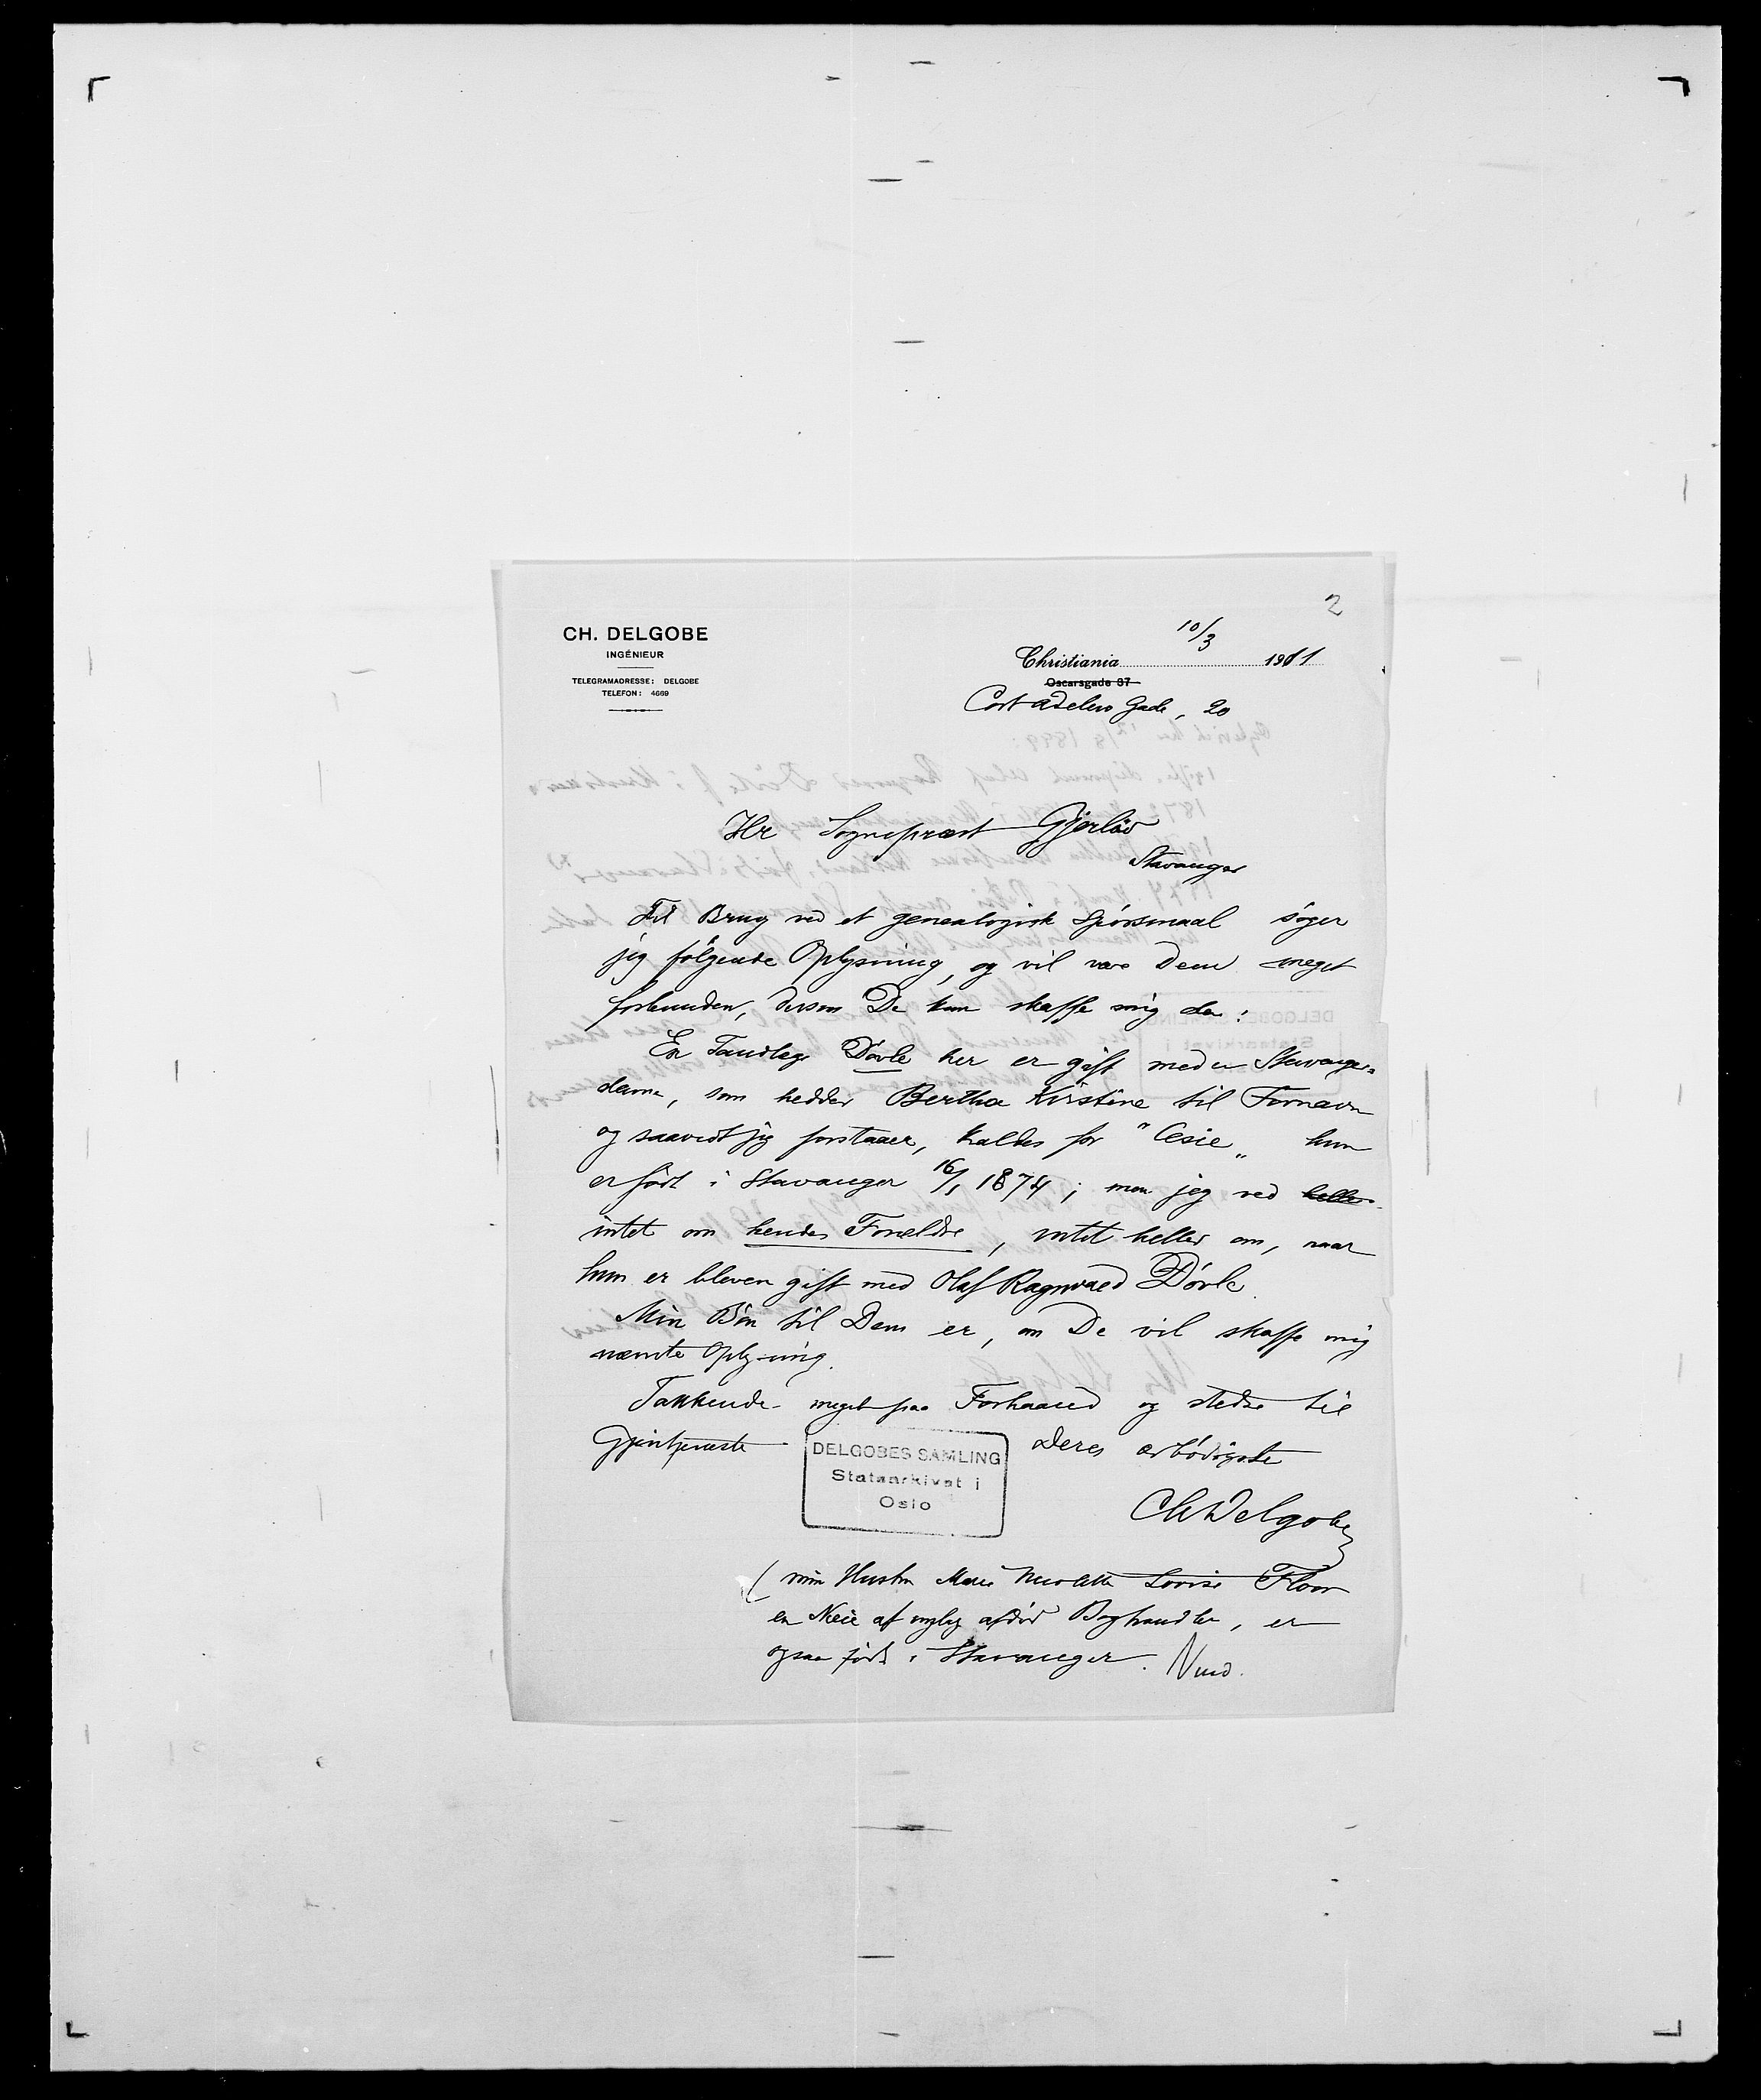 2
CH. DELGOBE
INGÉNIEUR
TELEGRAMADRESSE: DELGOBE
TELEFON: 4669
10/3
Christiania 1911
Oscarsgade 87
Cort Adelers Gade, 20
Hr Sognepræst Gjerløw
Stavanger
Til Brug ved et genealogisk Spörsmaal söger
jeg fölgende Oplysning, og vil være Dem meget
forbunden, dersom De kan skaffe mig den:
En Tandlæge Dövle her er gift med en Stavanger-
dame, som hedder Bertha Kirstine til Fornavn
og saavidt jeg forstaaer, kaldes for "Cesie" hun
er födt i Stavanger 16/1 1874; men jeg ved heller
intet om hendes Forældre, intet heller om, naar
hun er bleven gift med Olaf Ragnvald Dövle.
Min Bön til Dem er, om De vil skaffe mig
nævnte Oplysning.
Takkende meget paa Forhaand og stedse til
Gjentjeneste Deres ærbödigste
DELGOBES SAMLING
Statsarkivet i
Oslo
Ch Delgobe
(min Hustru Marie Nicolette Lovise Floor
en Niece af nylig afdöd Boghandler, er
ogsaa födt i Stavanger.